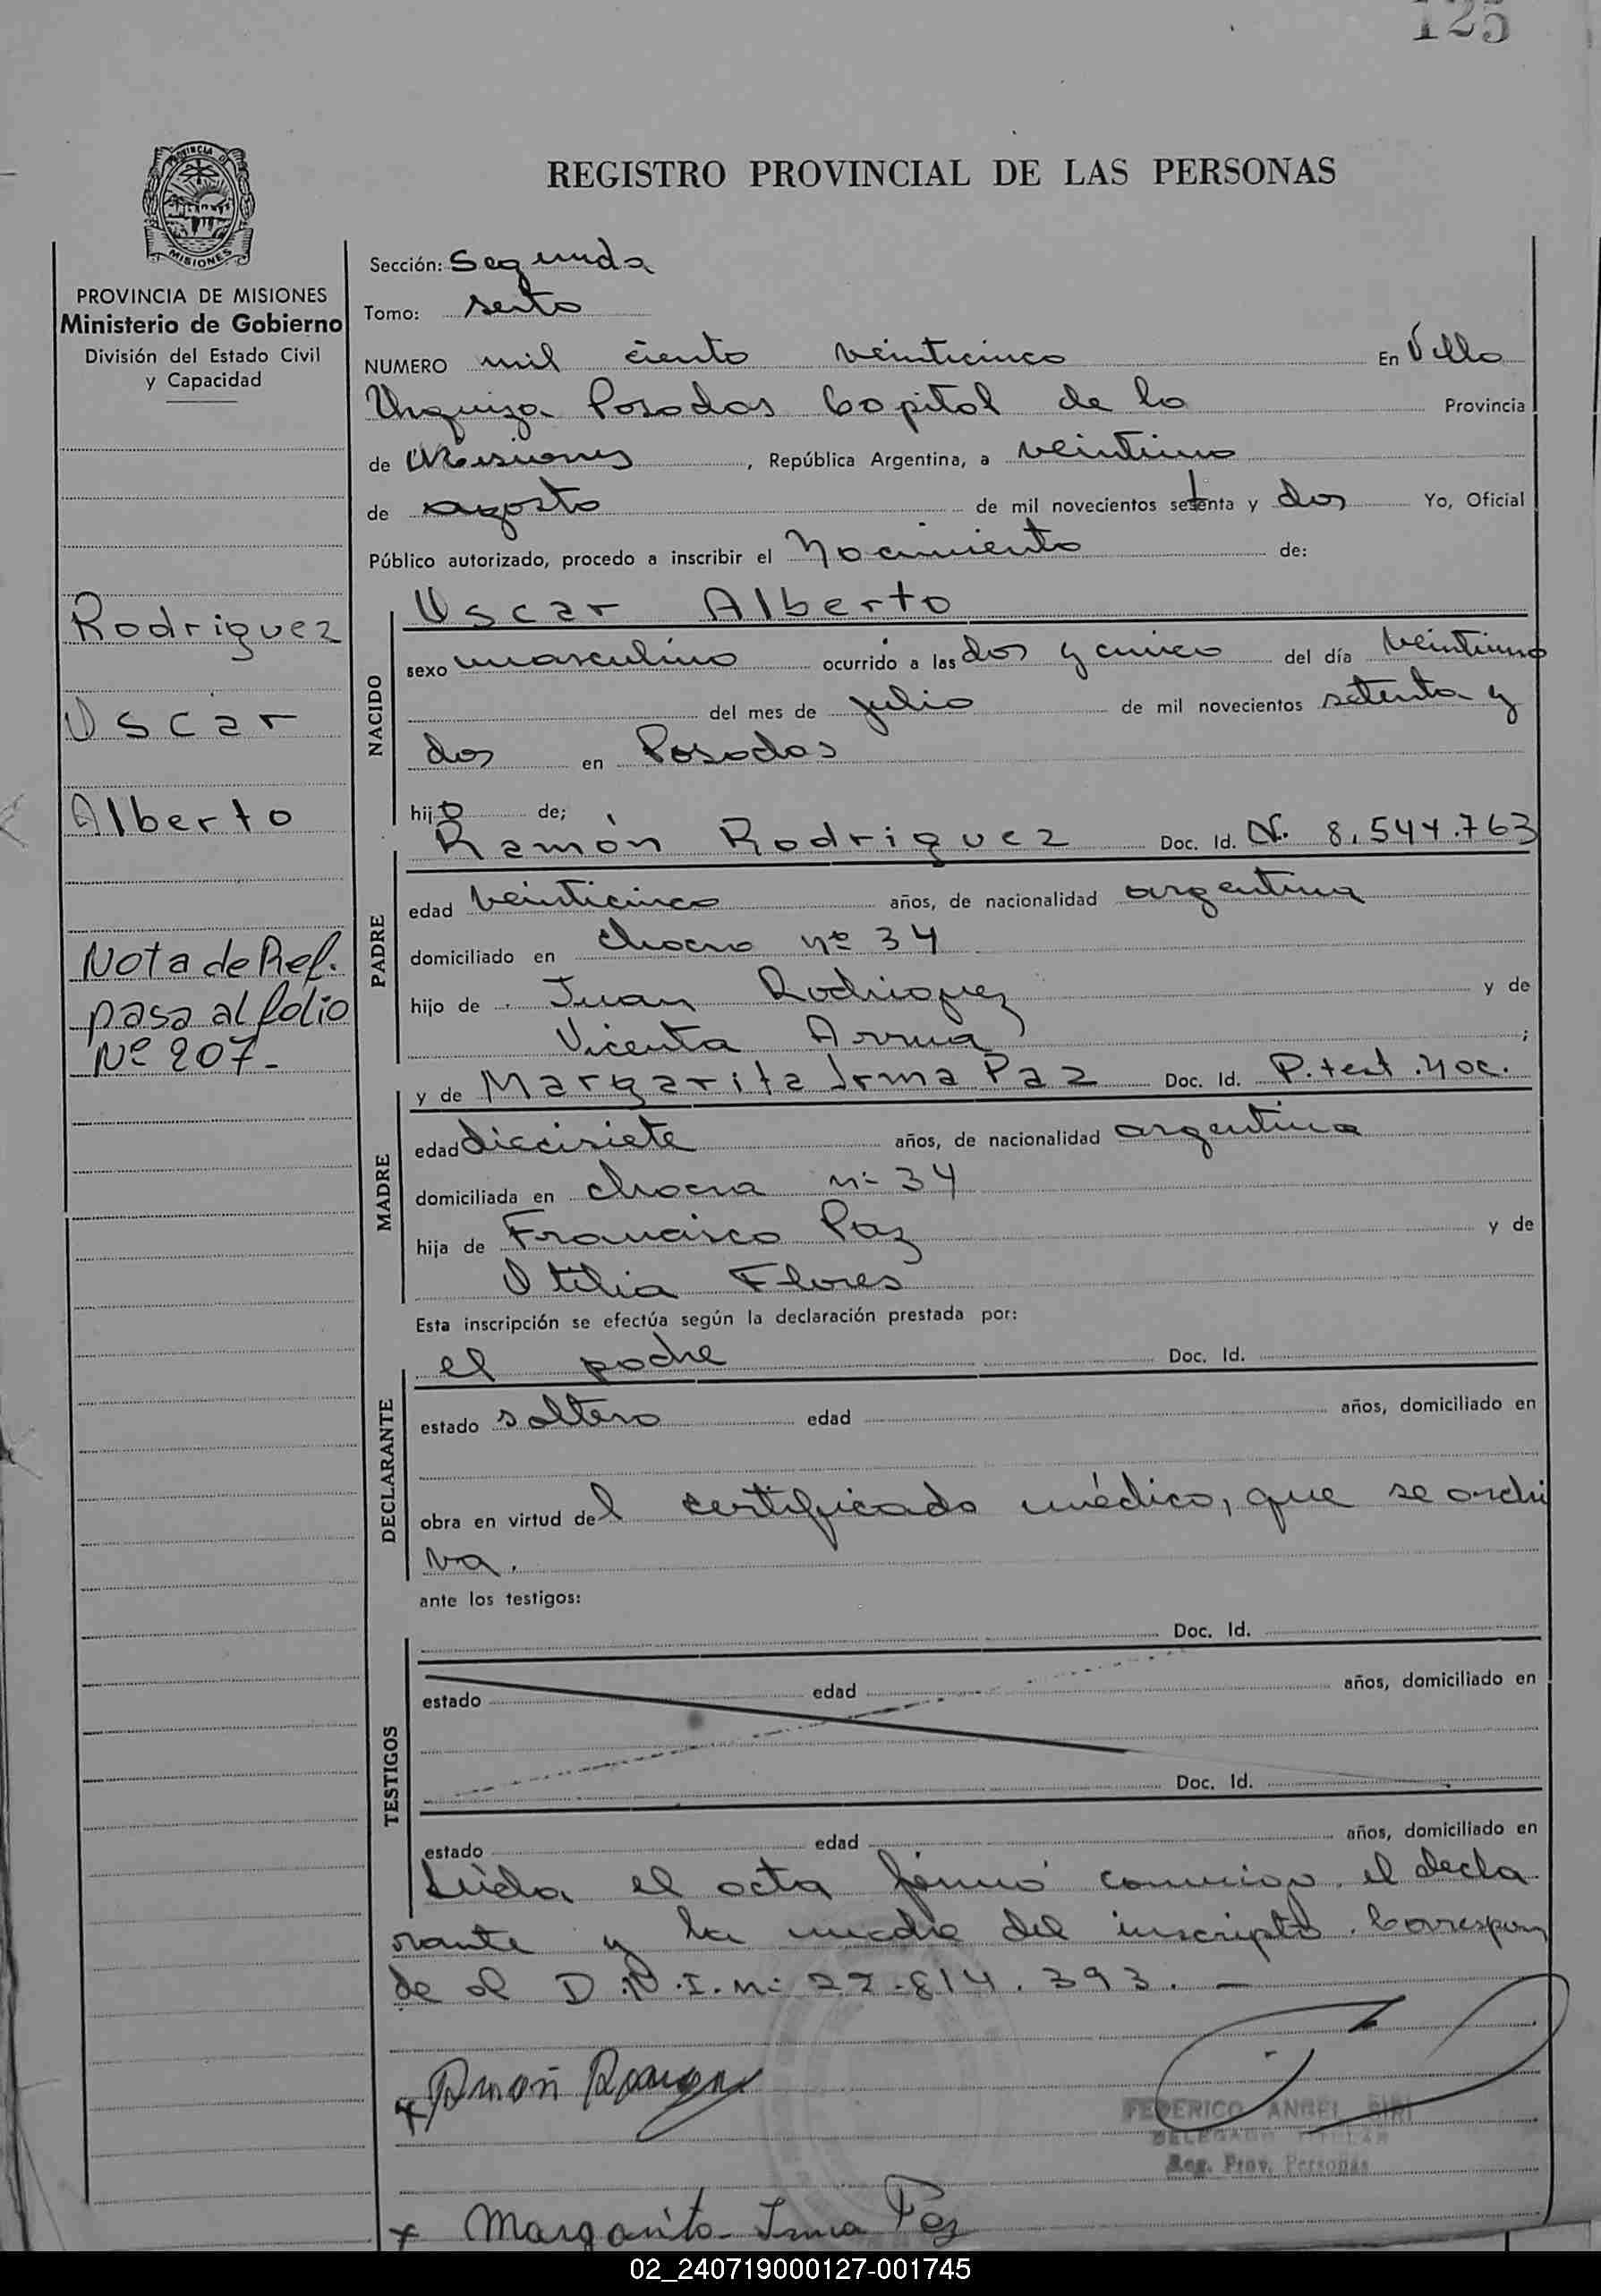 125
REGISTRO PROVINCIAL DE LAS PERSONAS
PROVINCIA DE
MISIONES
PROVINCIA DE MISIONES
Ministerio de Gobierno
División del Estado Civil
y Capacidad
Rodriguez
Oscar
Alberto
Nota de Ref.
pasa al folio
Nº 207.-
Sección: Segunda
Tomo: sexto
NUMERO mil ciento veinticinco En Villa
Urquiza Posadas Capital de la Provincia
de Misiones, República Argentina, a veintiuno
de agosto de mil novecientos setenta y dos Yo, Oficial
Público autorizado, procedo a inscribir el Nacimiento de:
NACIDO
Oscar Alberto
sexo masculino ocurrido a las dos y cinco del día veintiuno
del mes de julio de mil novecientos setenta y
dos en Posadas
hijo de;
PADRE
Ramón Rodriguez Doc. Id. N. 8.544.763
edad veinticinco años, de nacionalidad argentina
domiciliado en chacra nº 34
hijo de Juan Rodriguez y de
Vicenta Arrua ;
MADRE
y de Margarita Irma Paz Doc. Id. P. test. noc.
edad diecisiete años, de nacionalidad argentina
domiciliada en chacra nº 34
hija de Francisco Paz y de
Otilia Flores
Esta inscripción se efectúa según la declaración prestada por:
DECLARANTE
el padre Doc. Id.
estado soltero edad años, domiciliado en
obra en virtud del certificado médico, que se archi
va.
ante los testigos:
TESTIGOS
Doc. Id.
estado edad años, domiciliado en
Doc. Id.
estado edad años, domiciliado en
Leída el acta firmó conmigo el decla
rante y la madre del inscripto. Correspon
de al D.N.I. nº 22.814.393.-
x Ramón
FEDERICO ANGEL SIRI
DELEGADO TITULAR
Reg. Prov. Personas
x Margarita Irma Paz
02_240719000127-001745